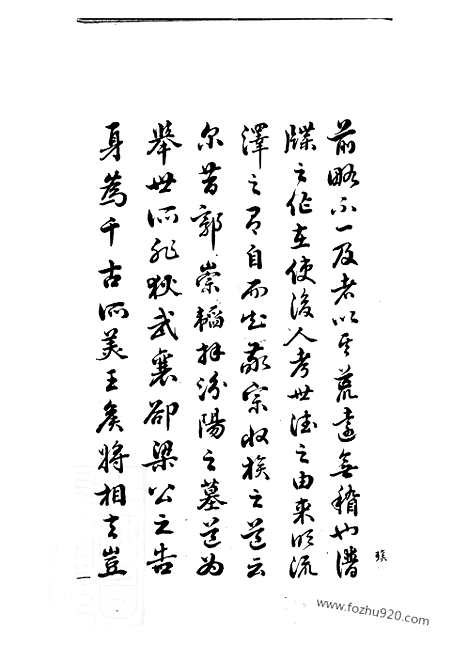 前略不一及者以其荒遠無稽也譜
牒之作在使後人考世德之由來明流
澤之有自而知敬宗收族之道云
尔昔郭崇韜拜汾陽之墓道为
舉世所非狄武襄卻梁公之告
身為千古所美王矦將相之豈
一
www.fozhu920.com